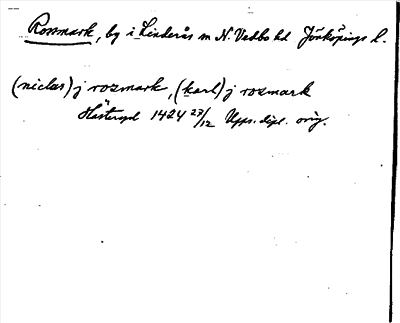 Rosmark, by i Linderås sn N. Vedbo hd Jönköpings l.
(niclas) j rozmark, (karl) j rozmark
1424 27/12 Upps. dipl. orig.